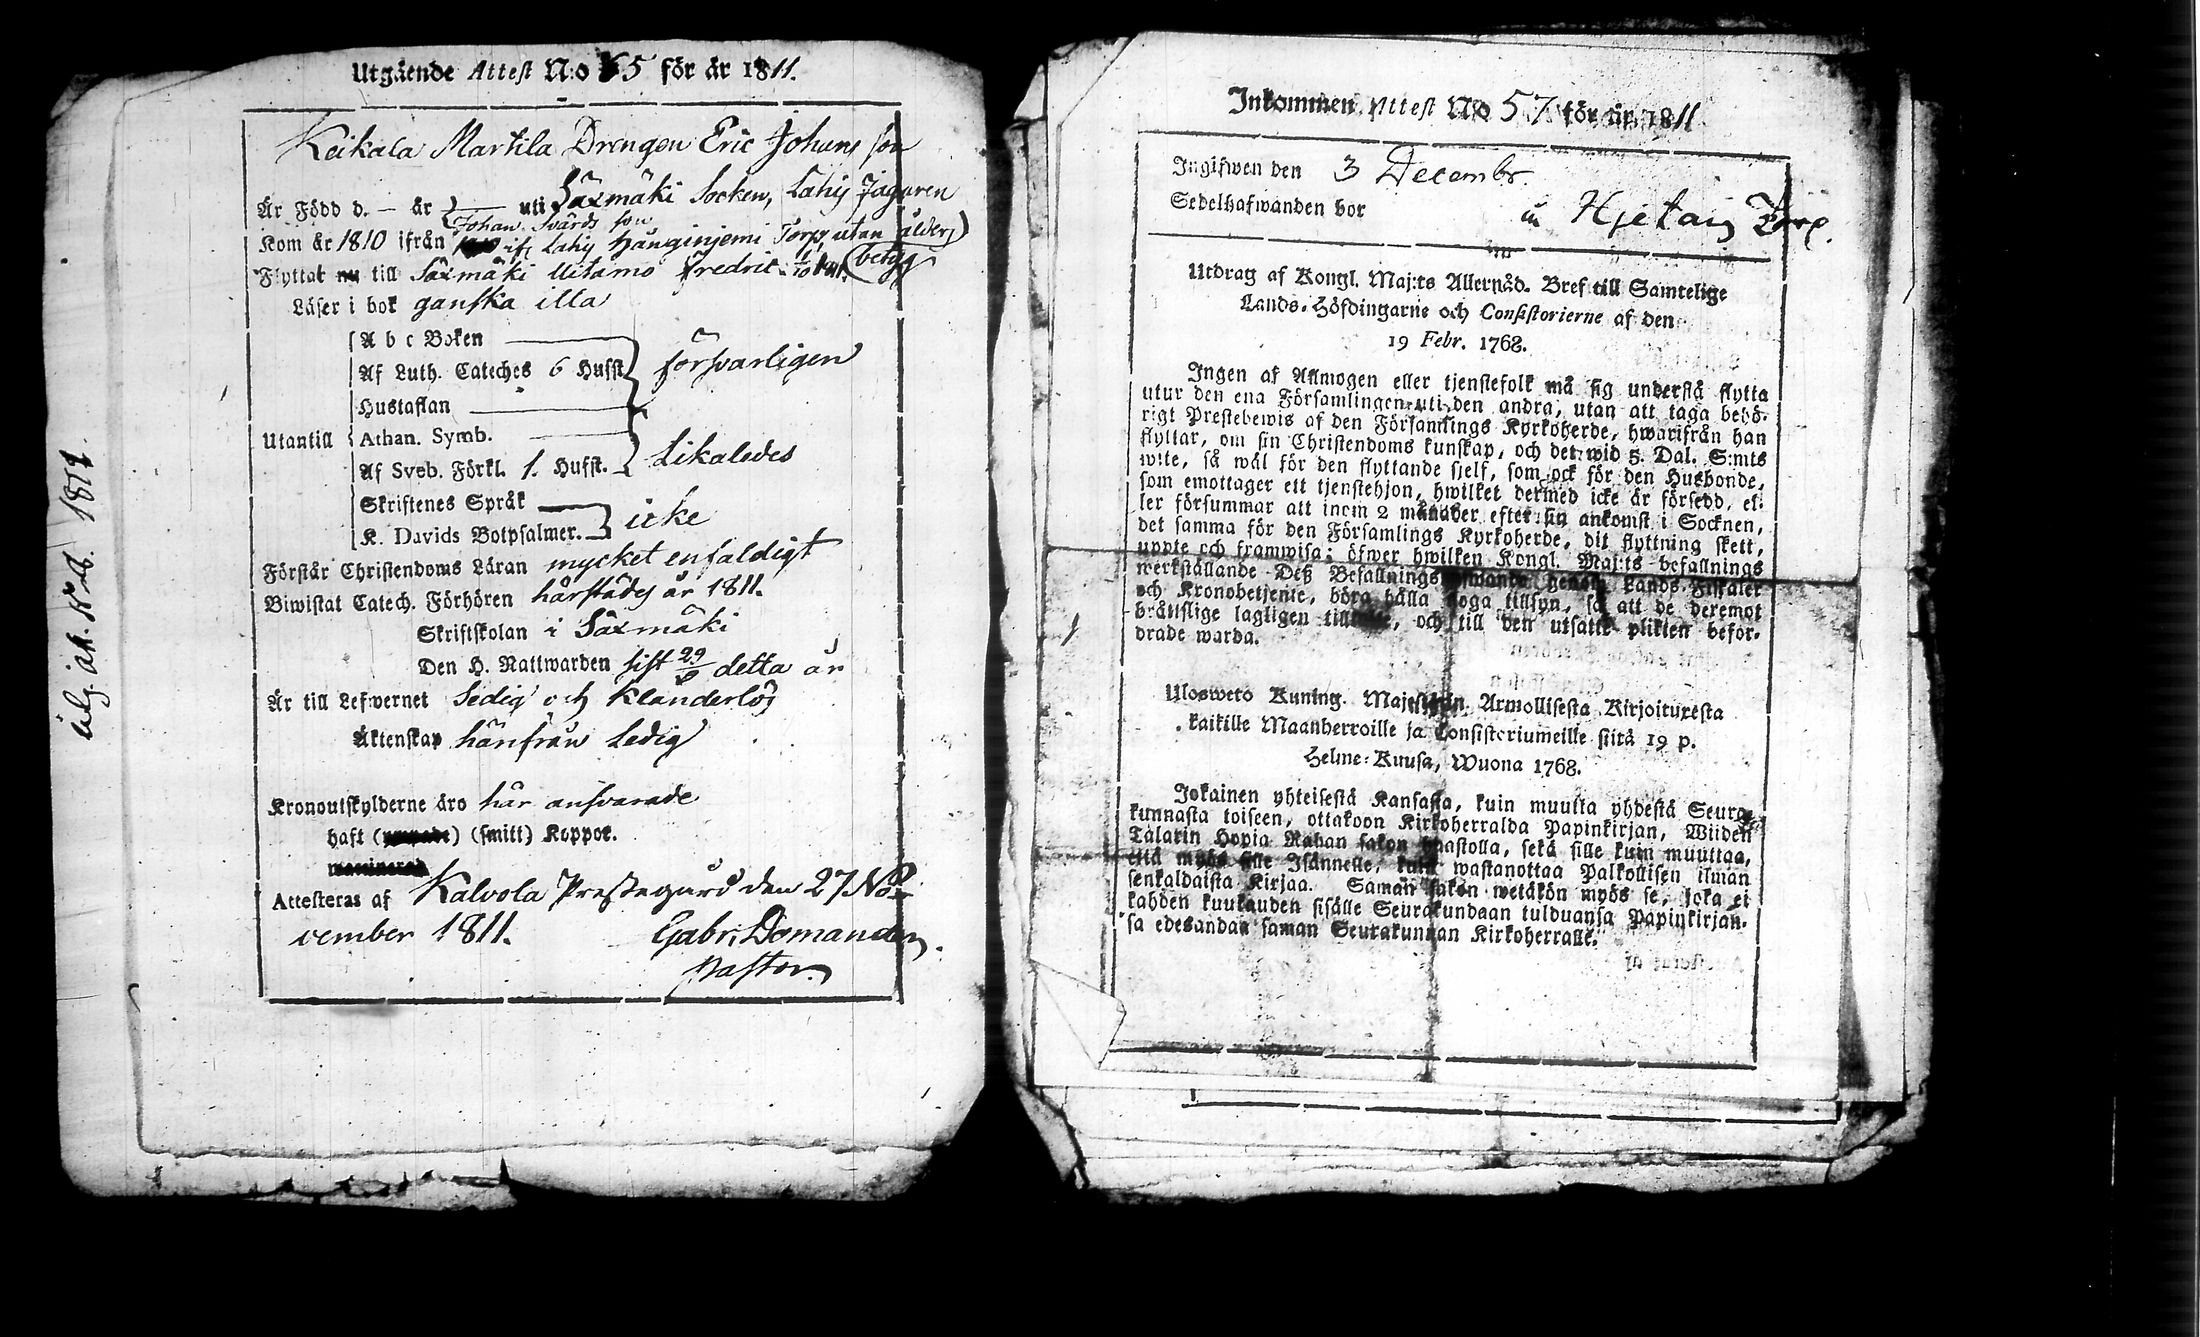 Utgående Attest N:o 65 för år 1811.
Keikala Martila Drengen Eric Johans son
Är Född d. — år — uti Säxmäki Socken, Lahis Jägaren
Johan Svärds son
Kom år 1810 ifrån Lahis Hänginjemi Torp, utan ålders
betyg
Flyttat nu till Säxmäki Uitamo Fredric
Läser i bok ganska illa
A b c Boken
Af Luth. Cateches 6 Hufst. försvarligen
Hustaflan
Utantill Athan. Symb.
Af Sveb. Förkl. 1. Hufst. Likaledes
Skriftenes Språk
K. Davids Botpsalmer. icke
Förstår Christendoms Läran mycket enfaldigt
Biwistat Catech. Förhören härstädes år 1811.
Skriftskolan i Säxmäki
Den H. Nattwarden sist 29/6 detta år
Är till Lefwernet Sedig och Klanderlös
Äktenskap härifrån Ledig
Kronoutskylderne äro här ansvarade
haft (smitt) Koppor.
Attesteras af Kalvola Prestegård den 27 No-
vember 1811. Gabr. Domander.
Pastor.
1811.
Inkommen Attest No 57 för år 1811
Ingifwen den 3 Decembr.
Sedelhafwanden bor Torp.
Utdrag af Kongl. Maj:ts Allernåd. Bref till Samtelige
Lands-Höfdingarne och Consistorierne af den
19 Febr. 1768.
Ingen af Allmogen eller tjenstefolk må sig understå flytta
utur den ena Församlingen uti den andra, utan att taga behö-
rigt Prestebewis af den Församlings Kyrkoherde, hwarifrån han
flyttar, om sin Christendoms kunskap, och det wid 5. Dal. S:mts
wite, så wäl för den flyttande sjelf, som ock för den Husbonde,
som emottager ett tjenstehjon, hwilket dermed icke är försedd, el-
ler försummar att inom 2 månader efter sin ankomst i Socknen,
det samma för den Församlings Kyrkoherde, dit flyttning skett,
uppte och framwisa; öfwer hwilken Kongl. Maj:ts befallnings
werkställande Deß Befallningshafwande genom Lands-Fiskaler
och Kronobetjente, böra hålla noga tillsyn, så att de deremot
brättslige lagligen, och till den utsatte plikten befor-
drade warda.
Uloswetö Kuning. Majestetin Armollisesta Kirjoituxesta
kaikille Maanherroille ja Consistoriumeille siitä 19 p.
Helme-Kuusa, Wuona 1768.
Jokainen yhteisestä Kansasta, kuin muutta yhdestä Seura-
kunnasta toiseen, ottakoon Kirkoherralda Papinkirjan, Wiiden
Talarin Hopia Rahan sakon haastolla, sekä sille kuin muuttaa,
että myös sille Isännelle, kuin wastanottaa Palkollisen ilman
senkaldaista Kirjaa. Saman sakon wetäkön myös se, joka ei
kahden kuukauden sisälle Seurakundaan tulduansa Papinkirjan-
sa edesandaa saman Seurakunnan Kirkoherralle.